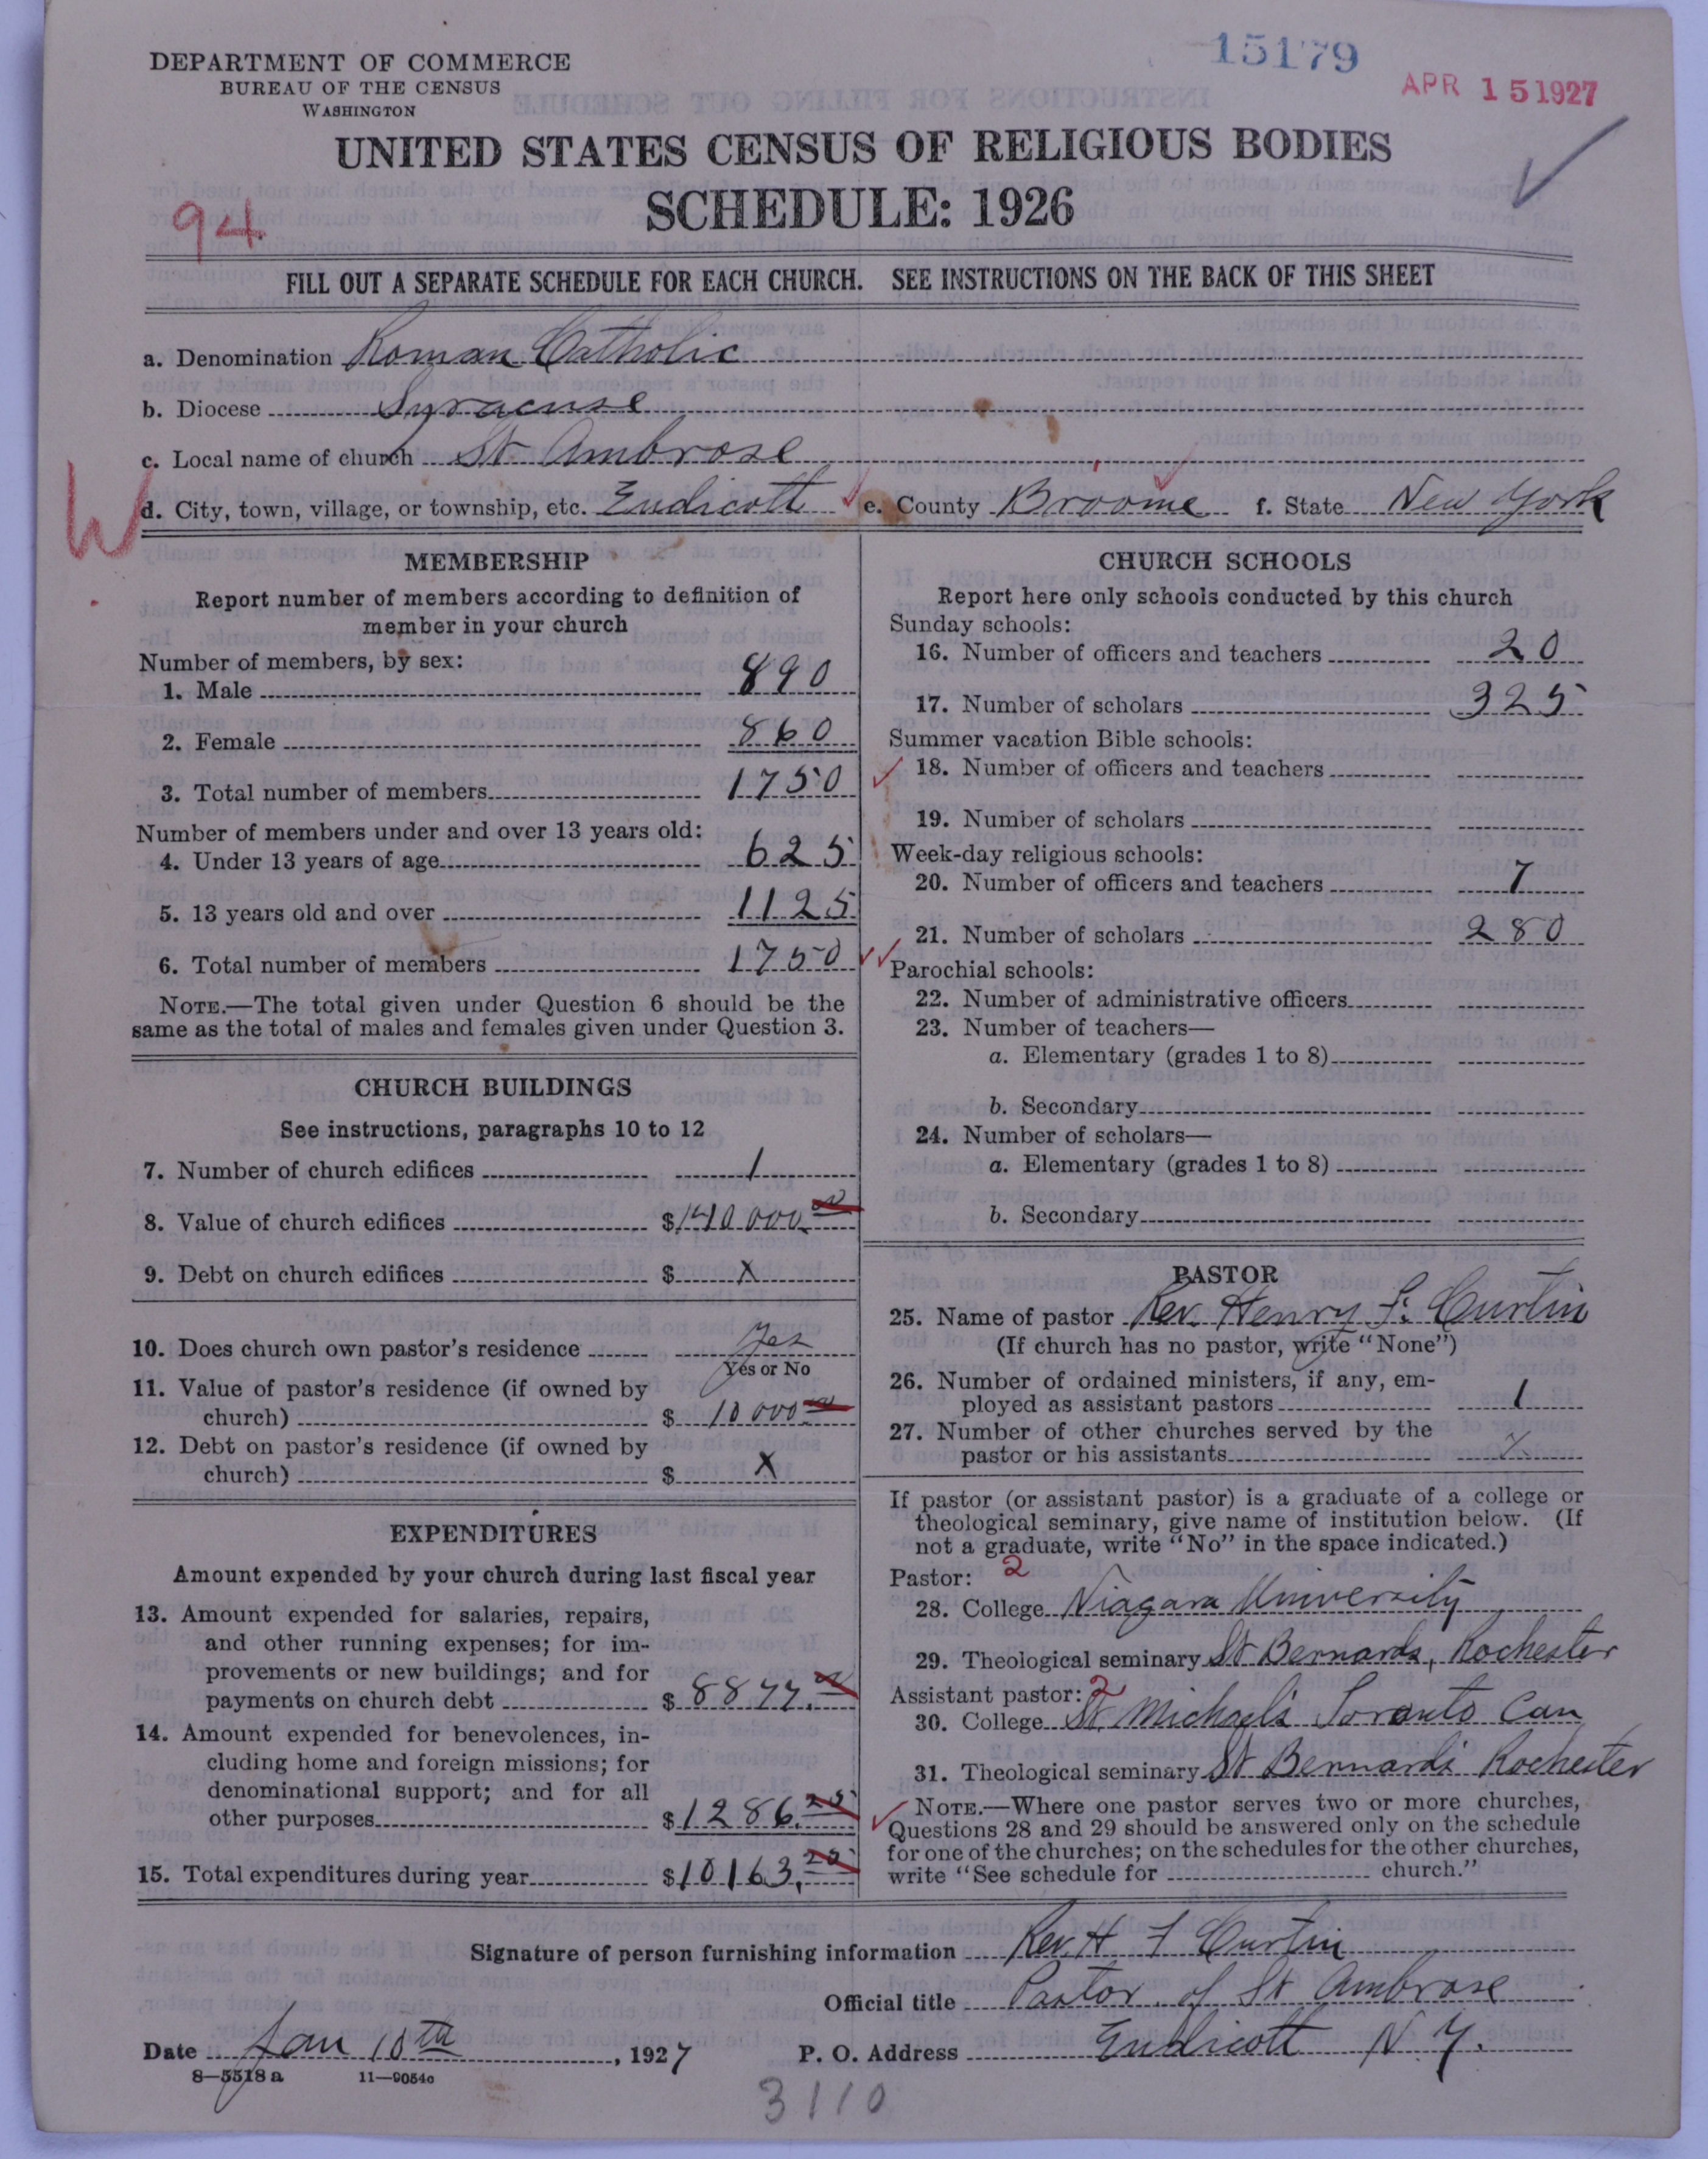 15179
APR 15 1927
DEPARTMENT OF COMMERCE
BUREAU OF THE CENSUS
WASHINGTON
UNITED STATES CENSUS OF RELIGIOUS BODIES
SCHEDULE: 1926
94
FILL OUT A SEPARATE SCHEDULE FOR EACH CHURCH. SEE INSTRUCTIONS ON THE BACK OF THIS SHEET
a. Denomination Roman Catholic
b. Diocese Syracuse
c. Local name of church St Ambrose
W
d. City, town, village, or township, etc. Endicott e. County Broome f. State New York
MEMBERSHIP
Report number of members according to definition of
member in your church
Number of members, by sex:
1. Male 890
2. Female 860
3. Total number of members 1750
Number of members under and over 13 years old:
4. Under 13 years of age 625
5. 13 years old and over 1125
6. Total number of members 1750
NOTE.—The total given under Question 6 should be the
same as the total of males and females given under Question 3.
CHURCH BUILDINGS
See instructions, paragraphs 10 to 12
7. Number of church edifices 1
8. Value of church edifices $140 000 00
9. Debt on church edifices $ X
10. Does church own pastor's residence Yes
Yes or No
11. Value of pastor's residence (if owned by
church) $ 10 000 00
12. Debt on pastor's residence (if owned by
church) $ X
EXPENDITURES
Amount expended by your church during last fiscal year
13. Amount expended for salaries, repairs,
and other running expenses; for im-
provements or new buildings; and for
payments on church debt $ 8877.00
14. Amount expended for benevolences, in-
cluding home and foreign missions; for
denominational support; and for all
other purposes $1286.25
15. Total expenditures during year $10163.25
CHURCH SCHOOLS
Report here only schools conducted by this church
Sunday schools:
16. Number of officers and teachers 20
17. Number of scholars 325
Summer vacation Bible schools:
18. Number of officers and teachers
19. Number of scholars
Week-day religious schools:
20. Number of officers and teachers 7
21. Number of scholars 280
Parochial schools:
22. Number of administrative officers
23. Number of teachers—
a. Elementary (grades 1 to 8)
b. Secondary
24. Number of scholars—
a. Elementary (grades 1 to 8)
b. Secondary
PASTOR
25. Name of pastor Rev. Henry F. Curtin
(If church has no pastor, write "None")
26. Number of ordained ministers, if any, em-
ployed as assistant pastors 1
27. Number of other churches served by the
pastor or his assistants X
If pastor (or assistant pastor) is a graduate of a college or
theological seminary, give name of institution below. (If
not a graduate, write "No" in the space indicated.)
Pastor: 2
28. College Niagara University
29. Theological seminary St Bernards, Rochester
Assistant pastor: 2
30. College St. Michael's Toronto Can
31. Theological seminary St Bernards Rochester
NOTE.—Where one pastor serves two or more churches,
Questions 28 and 29 should be answered only on the schedule
for one of the churches; on the schedules for the other churches,
write "See schedule for church."
Signature of person furnishing information Rev. H F Curtin
Official title Pastor of St Ambrose
Date Jan 10th, 1927 P. O. Address Endicott N.Y.
8—5518 a 11—9054c
3110